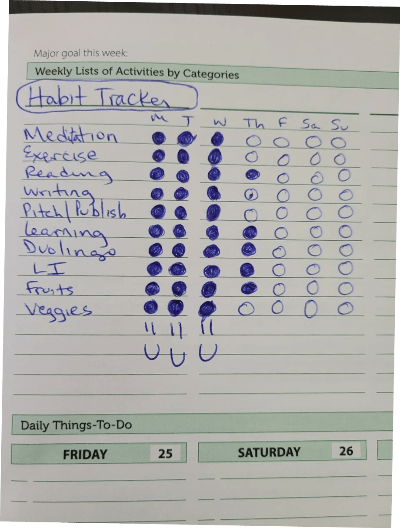 Major goal this week:
Weekly Lists of Activities by Categories
Habit Tracker
M T W Th F Sa Su
Meditation
Exercise
Reading
Writing
Pitch/Publish
Learning
Duolingo
LI
Fruits
Veggies
Daily Things-To-Do
FRIDAY 25 SATURDAY 26